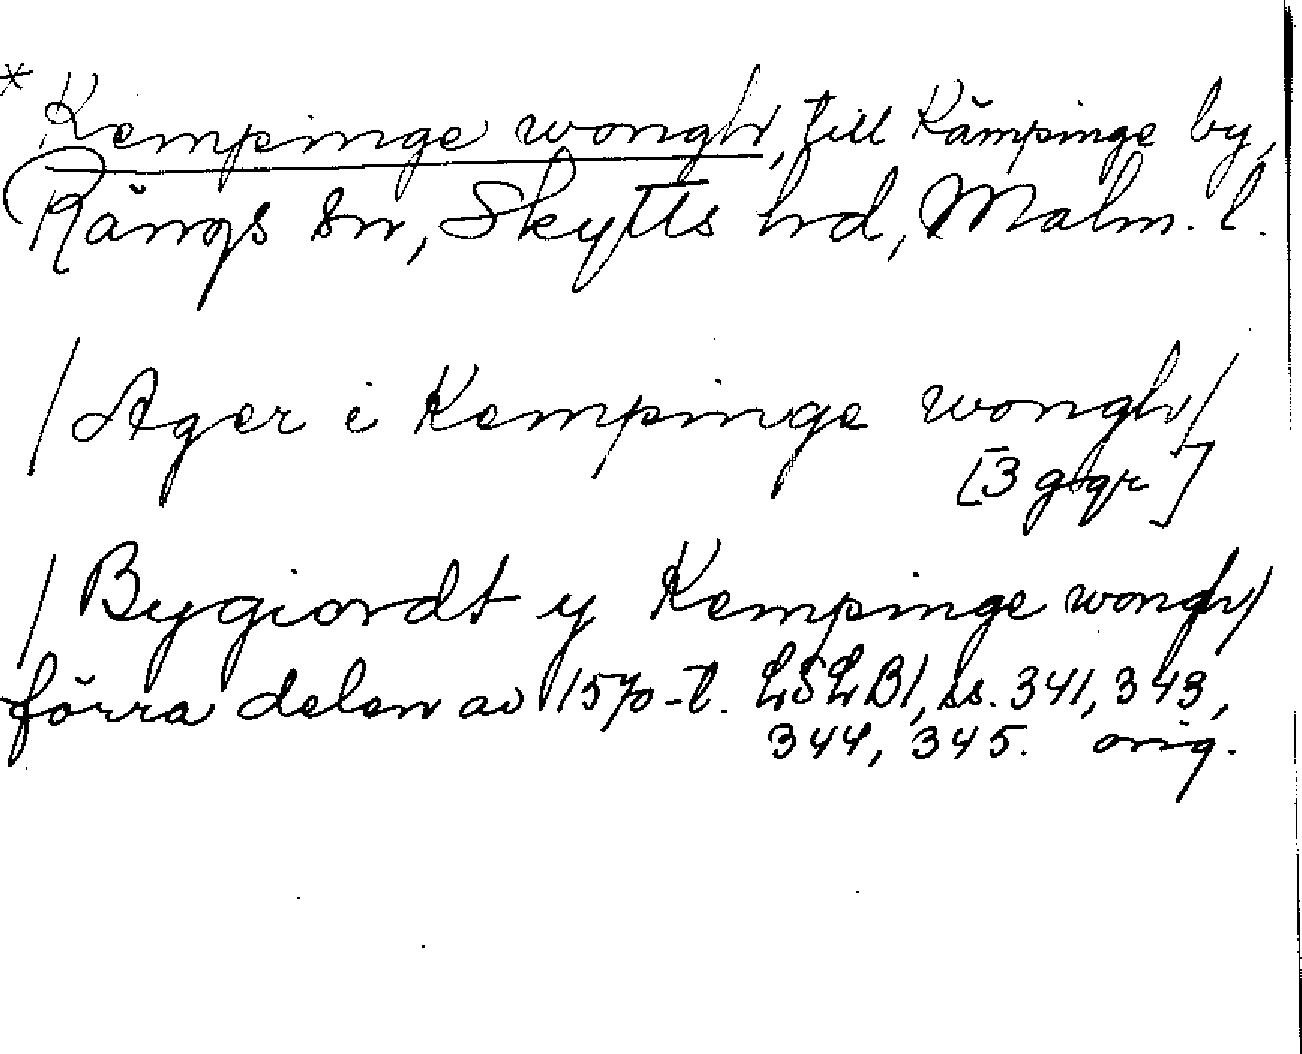 * Kempinge wongh, till Kämpinge by,
Rängs sn, Skytts hd, Malm. l.
/Ager i Kempinge wongh/
[3 ggr]
/Bygiordt y Kempinge wongh/
förra delen av 1570-t. LSLB1, ss. 341, 343,
344, 345. orig.